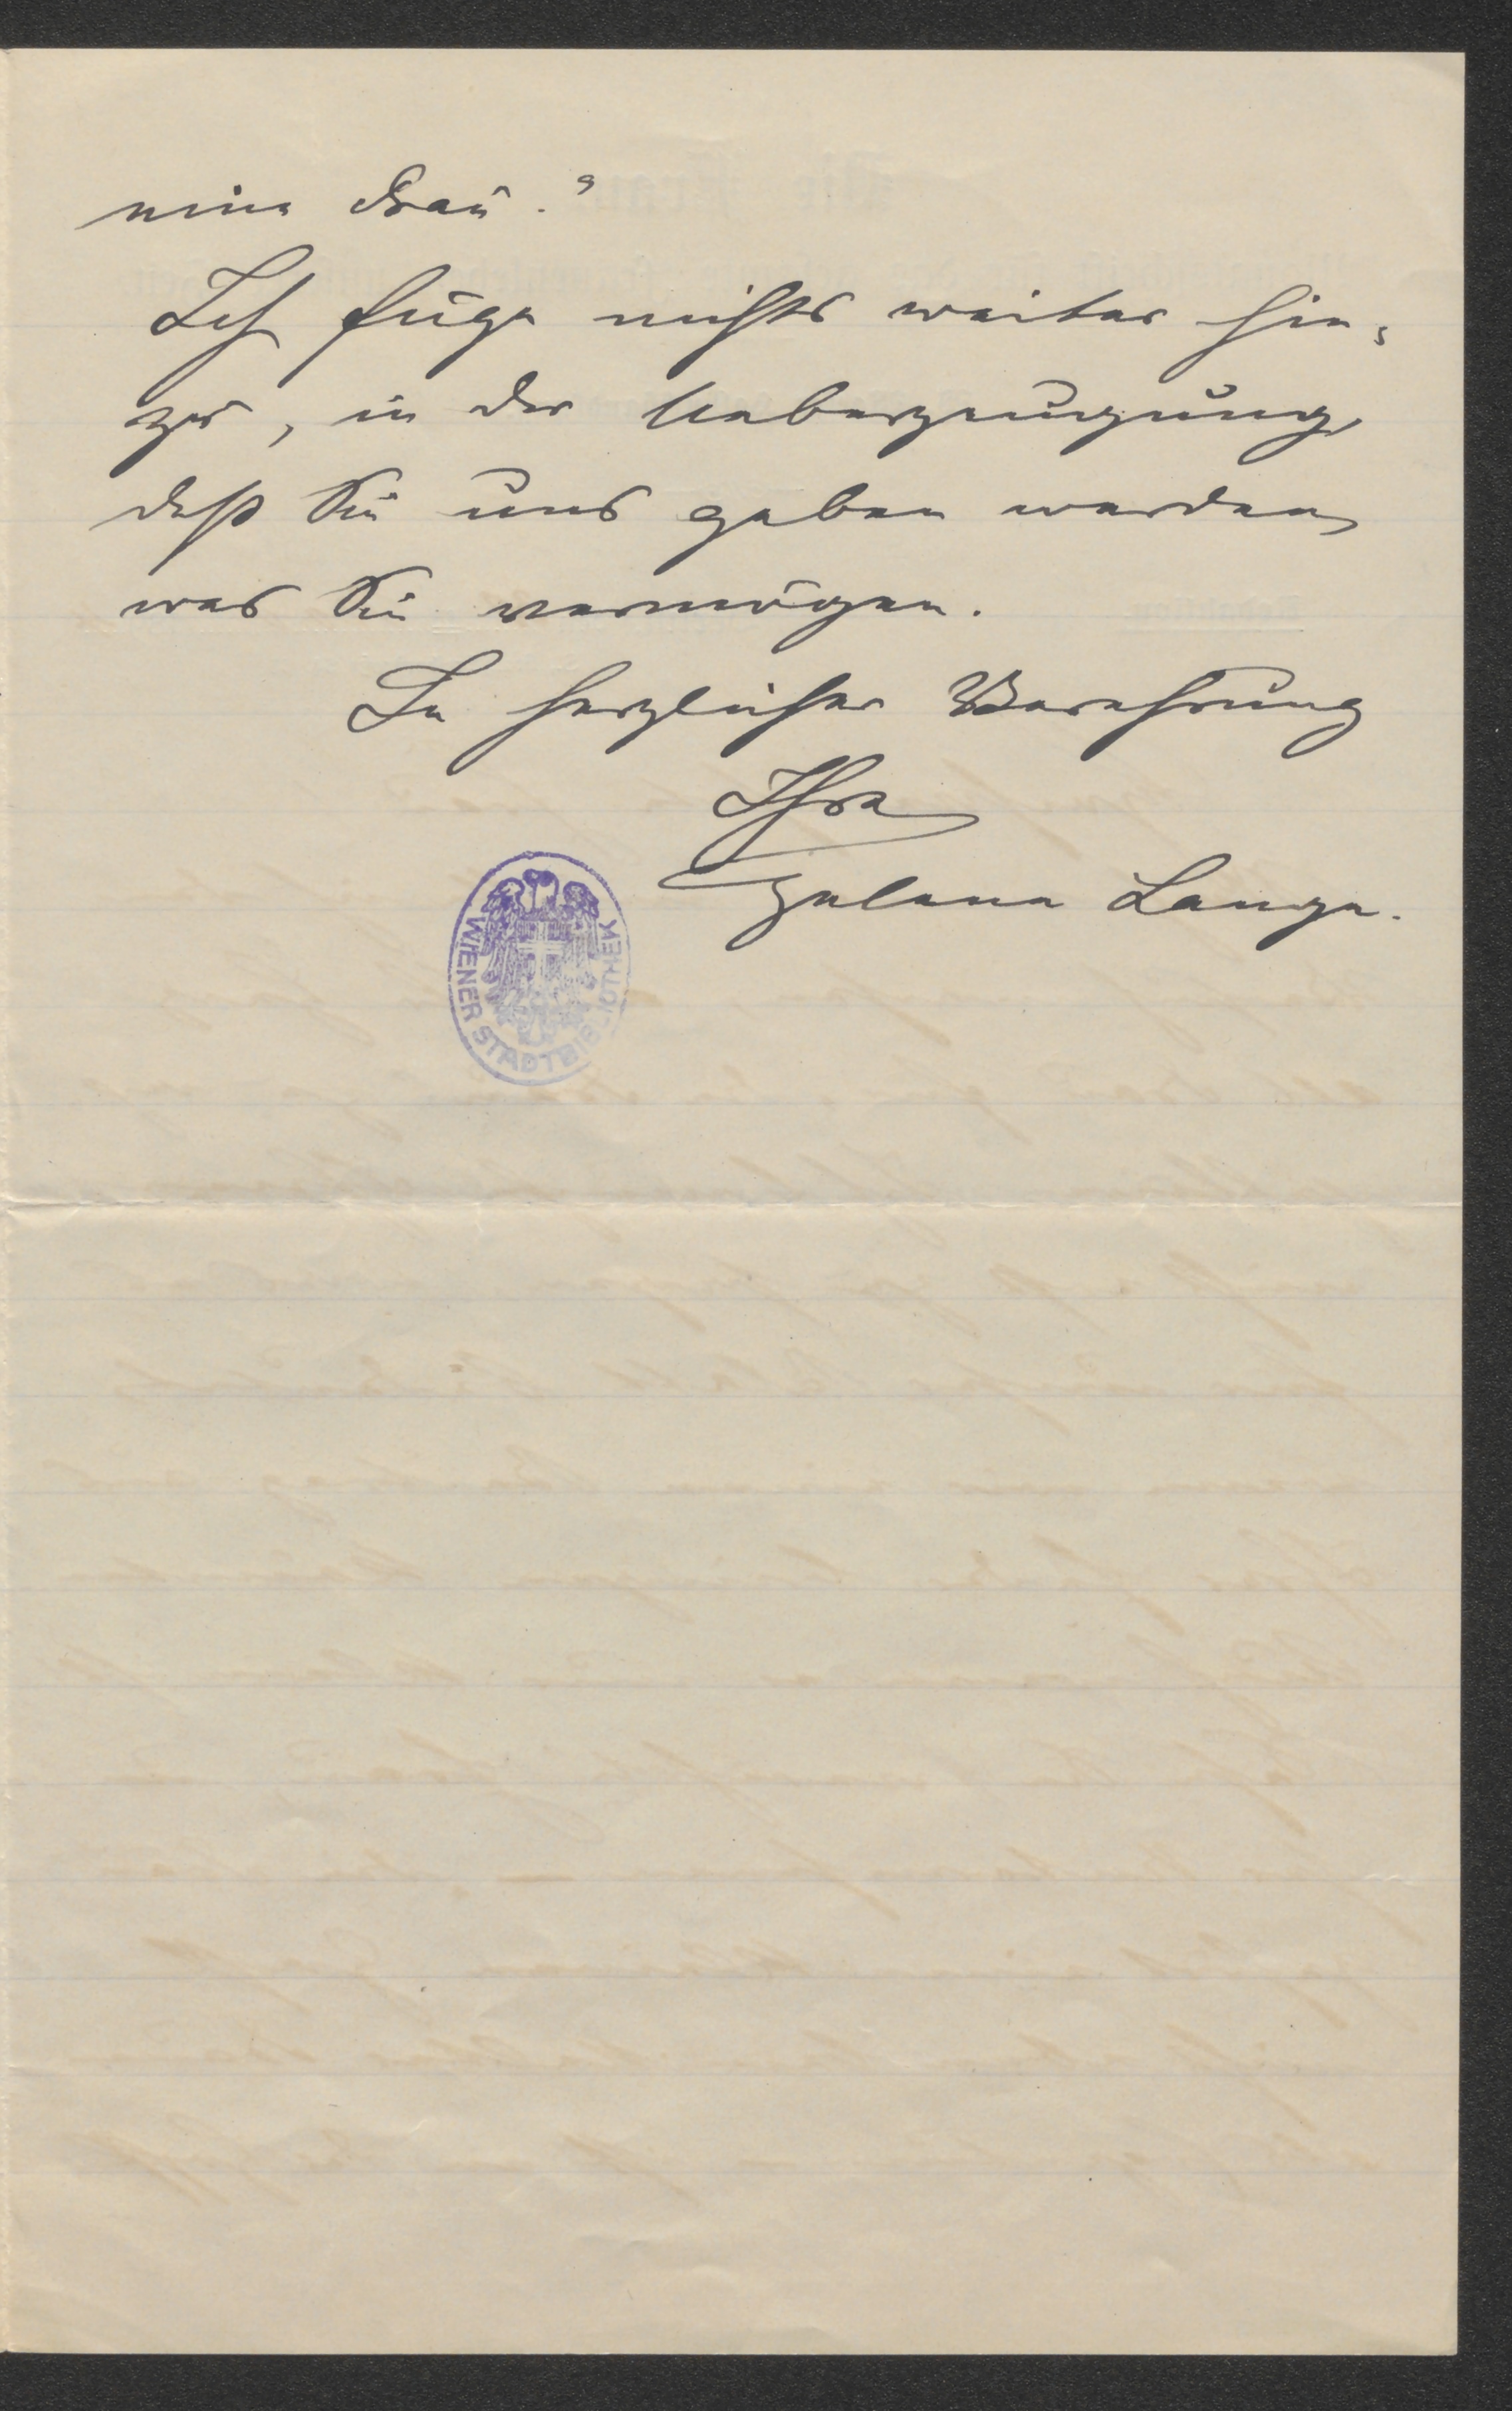 eine Frau."
Ich füge nichts weiter hin-
zu, in der Ueberzeugung,
daß Sie uns geben werden,
was Sie vermögen.
In herzlicher Verehrung
Ihre
Helene Lange.
WIENER STADTBIBLIOTHEK